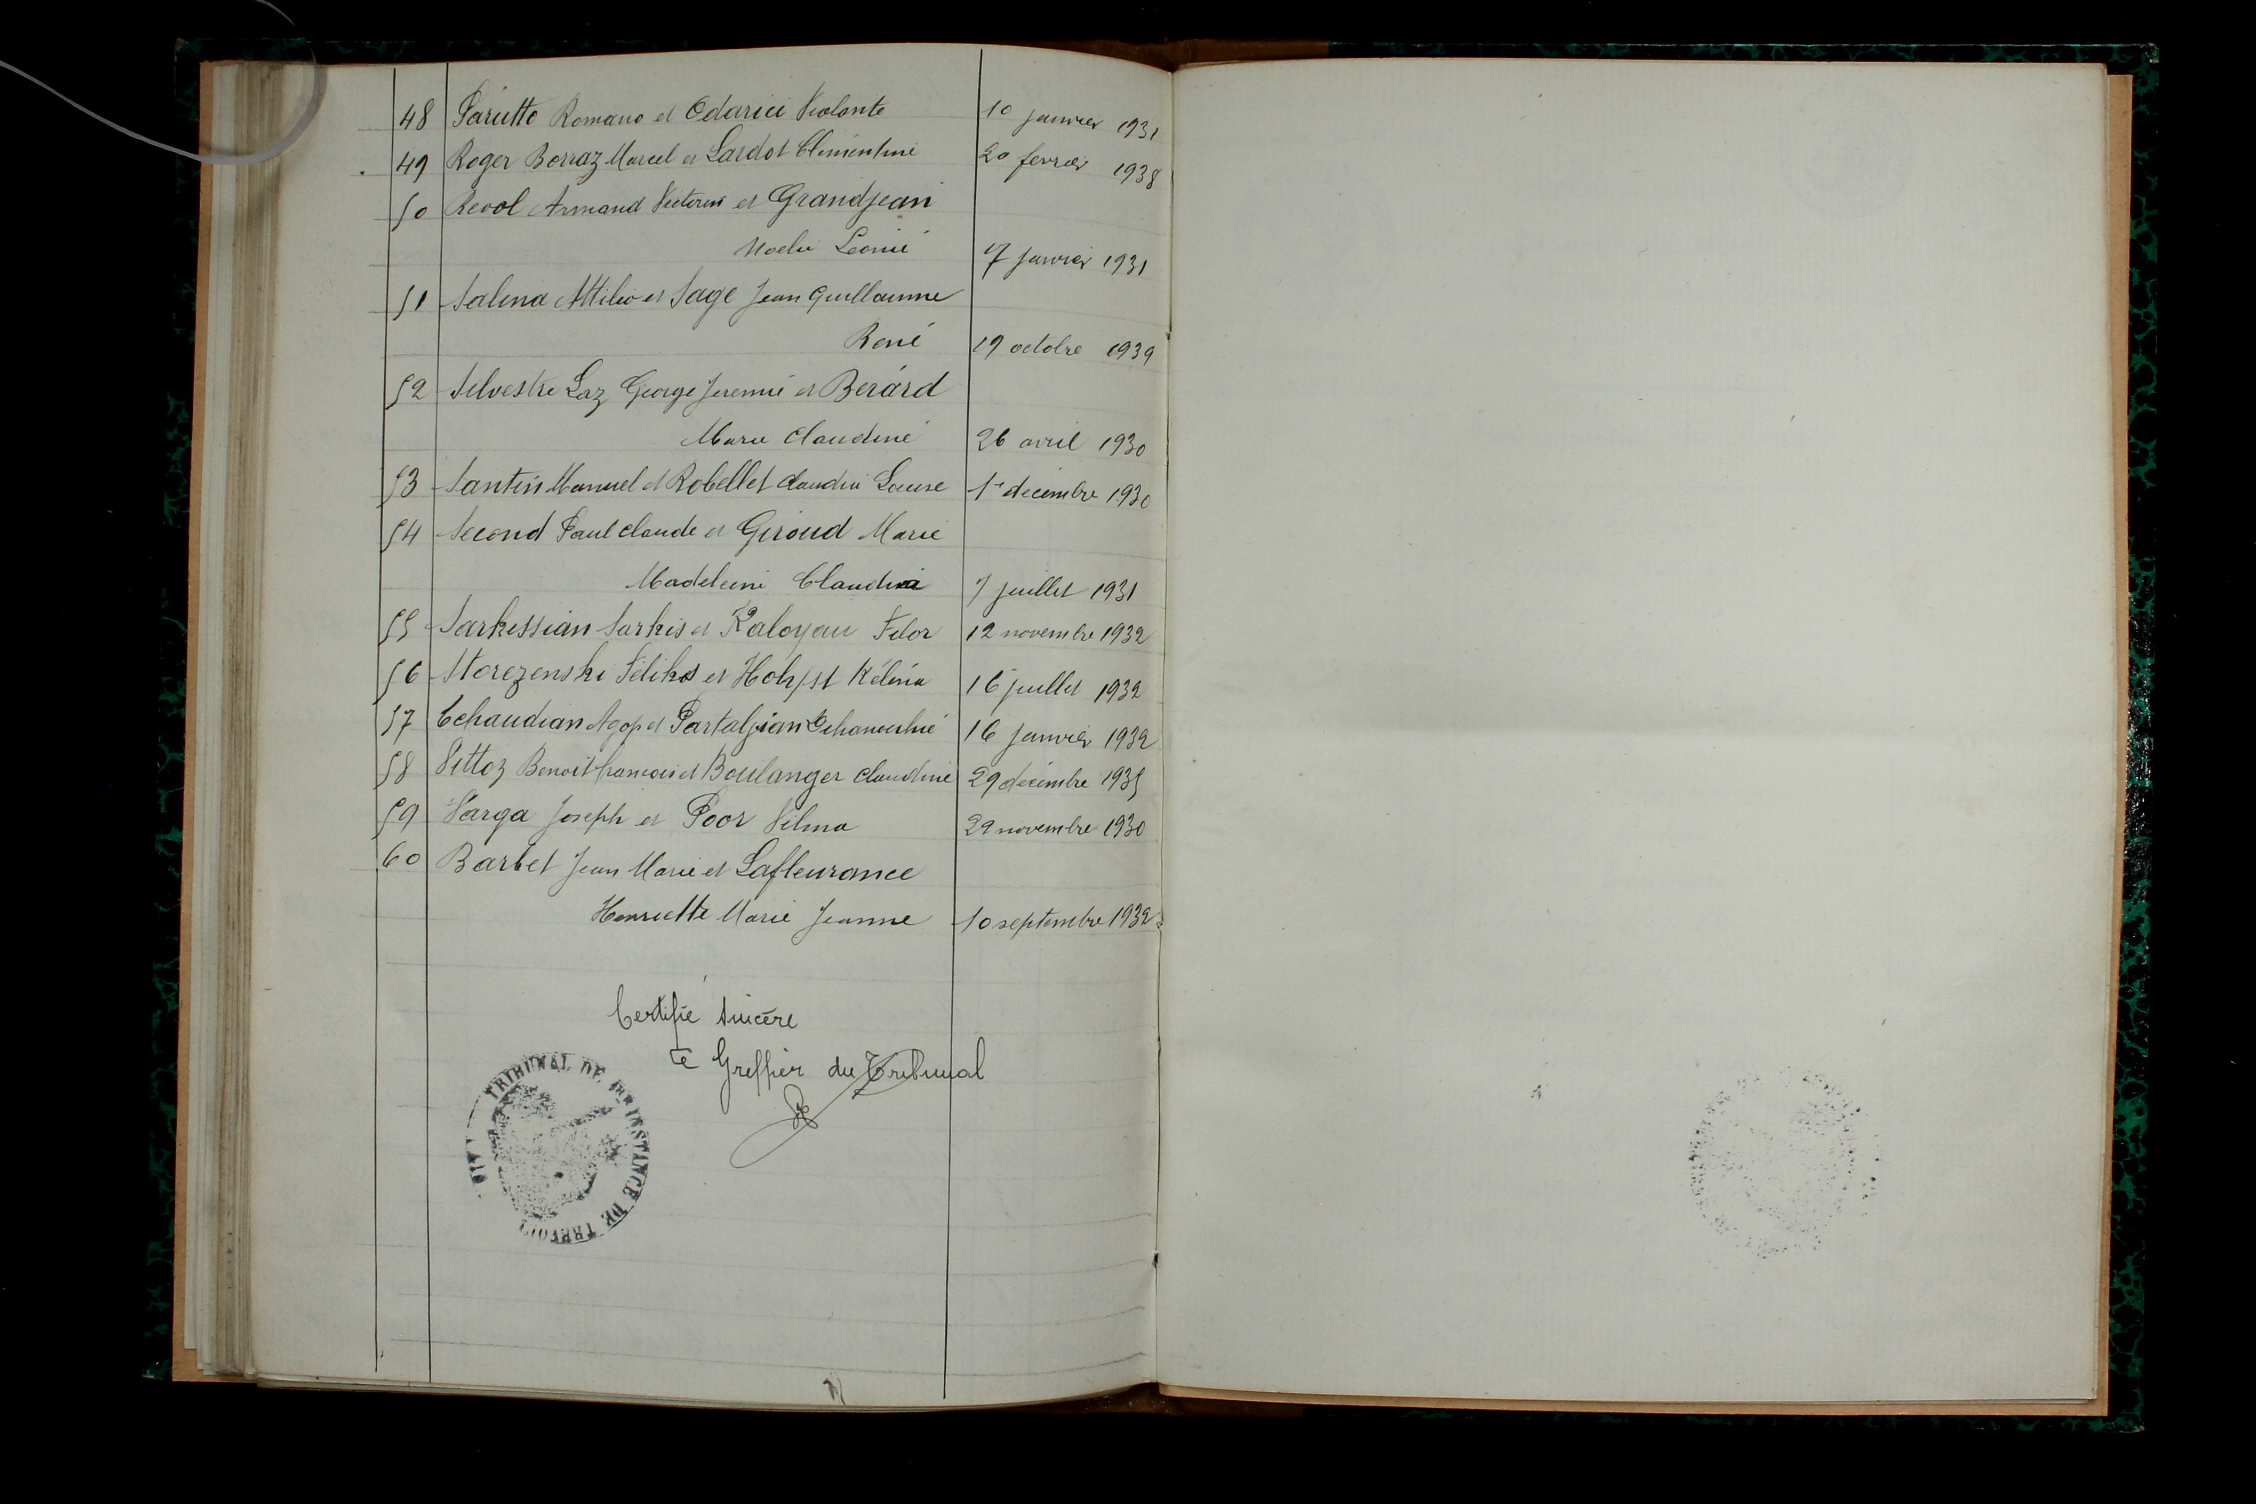 48 Parutto Romano et Odarici Violante 10 janvier 1931
49 Roger Borraz Marcel et Lardot Clémentine 20 fevrier 1938
50 Revol Armand Victorin et Grandjean
Noelie Léonie 17 janvier 1931
51 Salina Attilio et Sage Jean Guillaume
René 19 octobre 1939
52 Silvestre Laz George Jeremie et Berard
Marie Claudine 26 avril 1930
53 Santin Manuel et Robellet Claudia Louise 1er décembre 1930
54 Second Paul Claude et Giroud Marie
Madeleine Claudia 7 juillet 1931
55 Sarkissian Sarkis et Kaloyan Filor 12 novembre 1932
56 et 16 juillet 1932
57 Tchaudian Agop et 16 janvier 1932
58 Vittoz Benoit françois et Boulanger Claudine 29 décembre 1935
59 Varga Joseph et Poor Vilma 29 novembre 1930
60 Barbet Jean Marie et Lafleurance
Henriette Marie Jeanne 10 septembre 1932
Certifié sincère
Le Greffier du Tribunal
TRIBUNAL DE INSTANCE DE